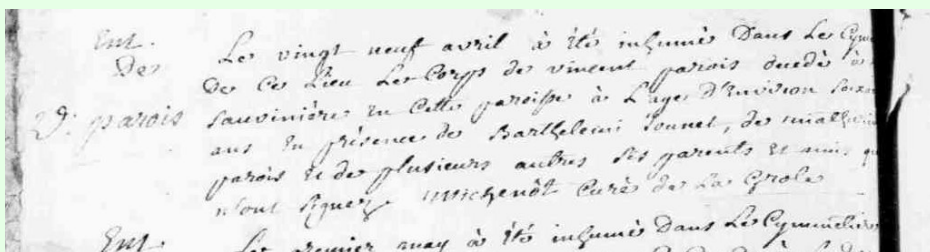 Ent.
De
V. parois
Le vingt neuf avril à été inhumé Dans Le Cyme
De Ce Lieu Le Corps de vincent parois décédé à
Sauvinière En Cette paroisse à L'age D'Environ Soixa
ans En présence de Barthelemi Jounet, de
parois et de plusieurs autres Ses parents et amis qu
n'ont Signez Michenôt Curé de La Grole
Ent.
Le premier may à été inhumé Dans Le Cymmetière